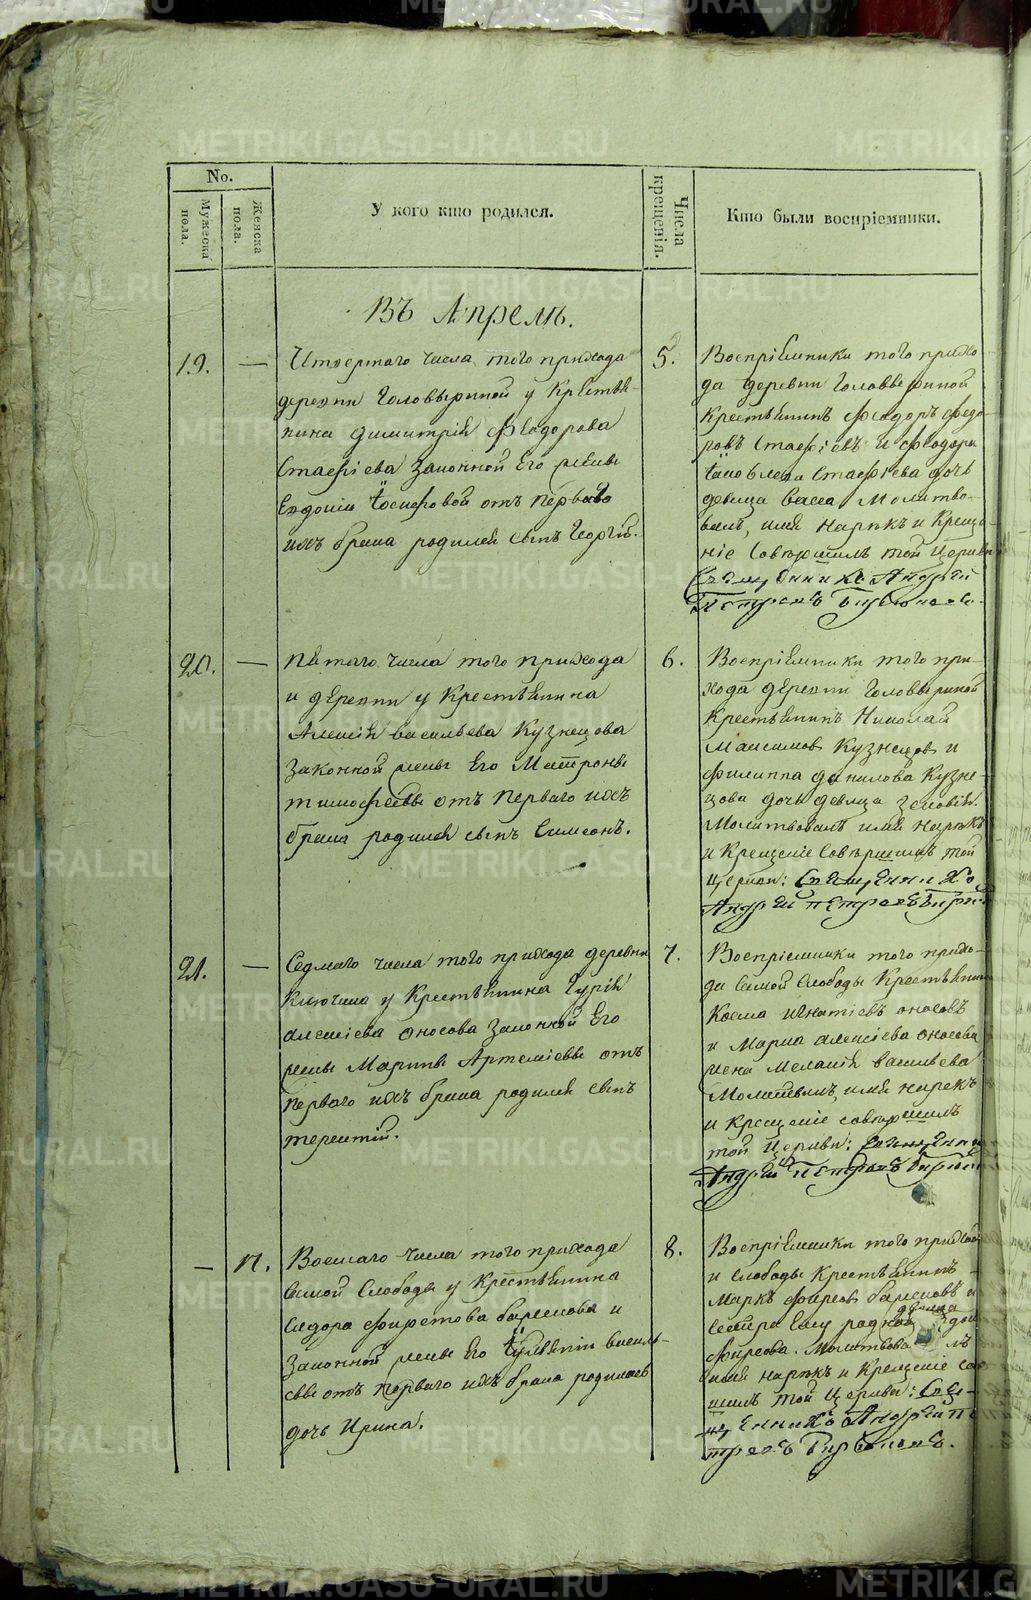 No.
Мужеска пола.
Женска пола.
У кого кто родился.
Числа крещенія.
Кто были воспріемники.
Въ Апрелѣ.
19. —
Четвертаго числа того прихода
деревни Головыриной у Крестья-
нина Димитрія Феодорова
Стаефіева законной его жены
Евдокіи Іосифовой отъ перваго
ихъ брака родился сынъ Георгій.
5.
Воспріемники того прихо-
да деревни Головыриной
Крестьянинъ Феодоръ Федо-
ровъ Стаефіевъ и Феодора
Стаефіева дочь
девица Васса Молитво-
валъ, имя нарѣкъ и Креще-
ніе Совершилъ той Церкви
Священникъ Андрей
Петровъ
20. —
Пятаго числа того прихода
и деревни у Крестьянина
Алексія Васильева Кузнецова
законной жены его Матроны
Тимофеевы отъ перваго ихъ
брака родился сынъ Симеонъ.
6.
Воспріемники того при-
хода деревни Головыриной
Крестьянинъ Николай
Максимовъ Кузнецовъ и
Филиппа Данилова Кузне-
цова дочь девица Зеновія.
Молитвовалъ имя нарѣкъ
и Крещеніе Совершилъ той
Церкви: Священникъ
Андрей Петровъ
21. —
Седмаго числа того прихода деревни
Ключика у Крестьянина Гурія
Алексіева Оносова законной его
жены Марины Артеміевы отъ
перваго ихъ брака родился сынъ
Терентій.
7.
Воспріемники того прихо-
да самой Слободы Крестьянинъ
Козма Игнатіевъ Оносовъ
и Марка Алексіева Оносова
жена Меланія Васильева
Молитвовалъ, имя нарекъ
и Крещеніе совершилъ
той Церкви: Священникъ
Андрей Петровъ
— 17.
Восмаго числа того прихода
самой Слободы у Крестьянина
Сидора Фирстова Барсмова и
законной жены его Іуліяніи Василь-
евы отъ перваго ихъ брака родилась
дочь Ирина.
8.
Воспріемники того прихода
и слободы Крестьянинъ
Маркъ Фирсовъ и
сестра ему родная девица
Фирсова. Молитвовалъ
имя нарѣкъ и Крещеніе со-
шилъ той Церкви: Свя-
щенникъ Андрей Пе-
тровъ
METRIKI.GASO-URAL.RU